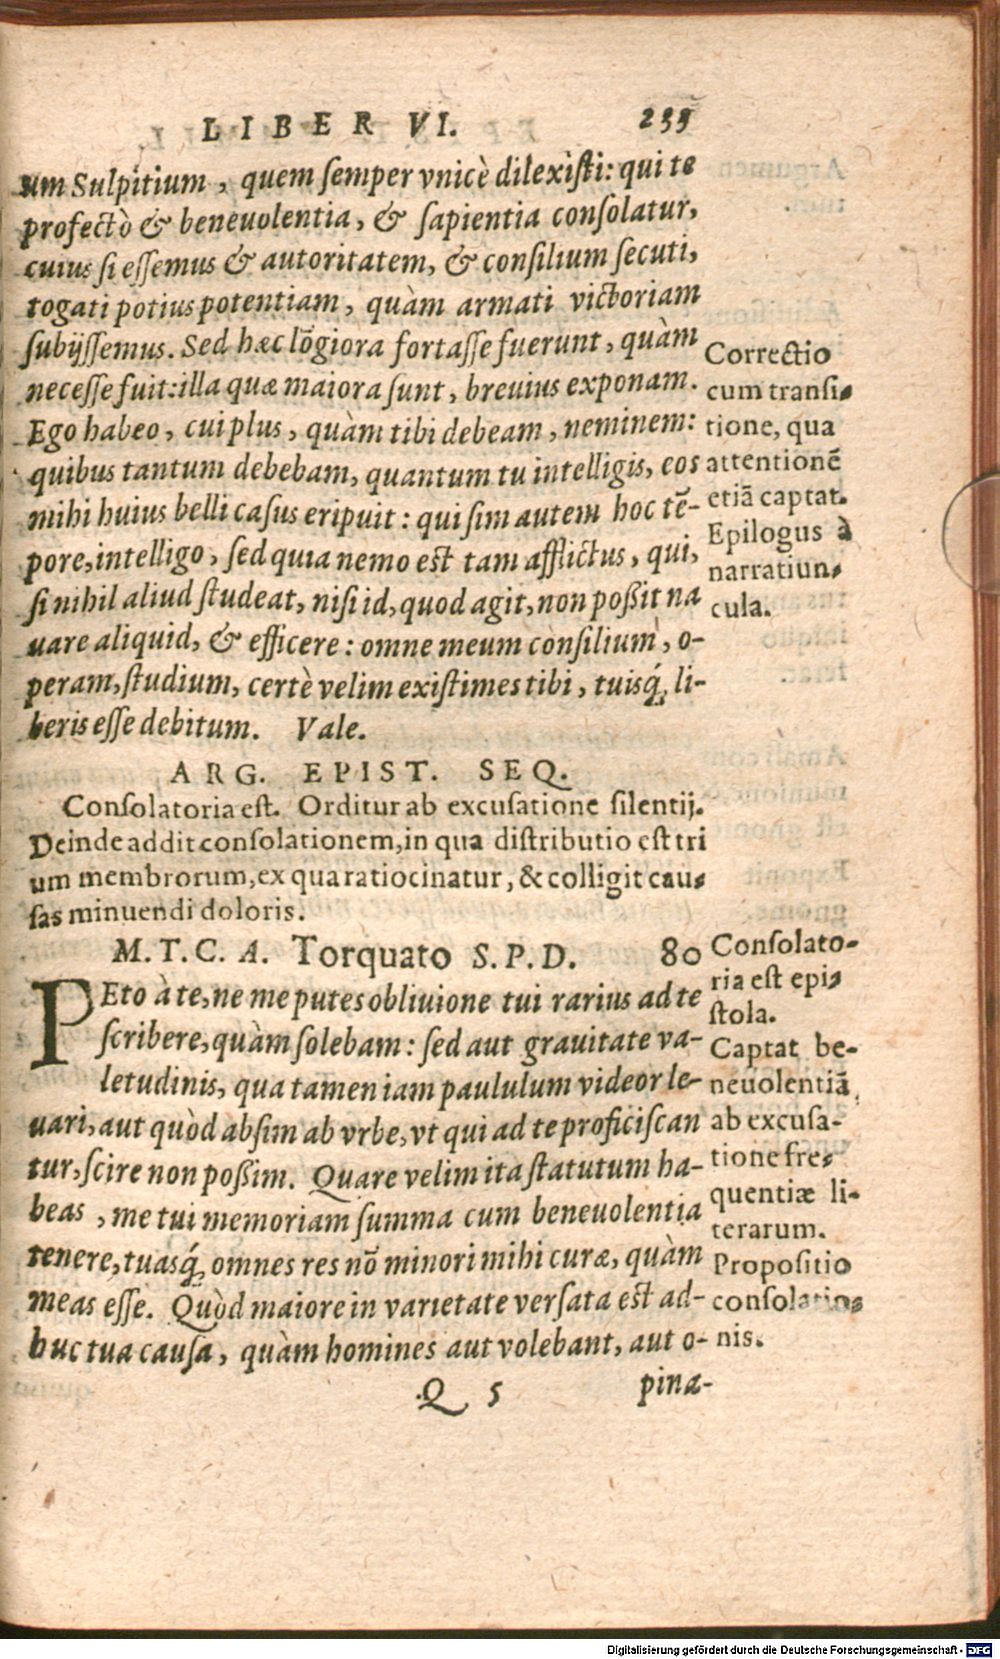 LIBER VI. 233
um Sulpitium, quem semper vnicè dilexìsti: qui te
profectò & beneuolentia, & sapientia consolatur,
cuius si essemus & autoritatem, & consilium secuti,
togati potius potentiam, quàm armati victoriam
subijssemus. Sed hæc lõgiora fortasse fuerunt, quàm
necesse fuit: illa quæ maiora sunt, breuius exponam.
Ego habeo, cui plus, quàm tibi debeam, neminem:
quibus tantum debebam, quantum tu intelligis, eos
mihi huius belli casus eripuit: qui sim autem hoc tẽ-
pore, intelligo, sed quia nemo est tam afflictus, qui,
si nihil aliud studeat, nisi id, quod agit, non poßit na
uare aliquid, & efficere: omne meum consilium, o-
peram, studium, certè velim existimes tibi, tuisq́; li-
beris esse debitum. Vale.
Correctio
cum transi-
tione, qua
attentionẽ
etiã captat.
Epilogus à
narratiun-
cula.
ARG. EPIST. SEQ.
Consolatoria est. Orditur ab excusatione silentij.
Deinde addit consolationem, in qua distributio est tri
um membrorum, ex qua ratiocinatur, & colligit cau-
sas minuendi doloris.
M. T. C. A. Torquato S. P. D. 80
PEto à te, ne me putes obliuione tui rarius ad te
scribere, quàm solebam: sed aut grauitate va-
letudinis, qua tamen iam paululum videor le-
uari, aut quòd absim ab vrbe, vt qui ad te proficiscan
tur, scire non poßim. Quare velim ita statutum ha-
beas, me tui memoriam summa cum beneuolentia
tenere, tuasq́; omnes res nõ minori mihi curæ, quàm
meas esse. Quòd maiore in varietate versata est ad-
huc tua causa, quàm homines aut volebant, aut o-
Consolato-
ria est epi-
stola.
Captat be-
neuolentiã
ab excusa-
tione fre-
quentiæ li-
terarum.
Propositio
consolatio-
nis.
Q 5 pina-
Digitalisierung gefördert durch die Deutsche Forschungsgemeinschaft - DFG